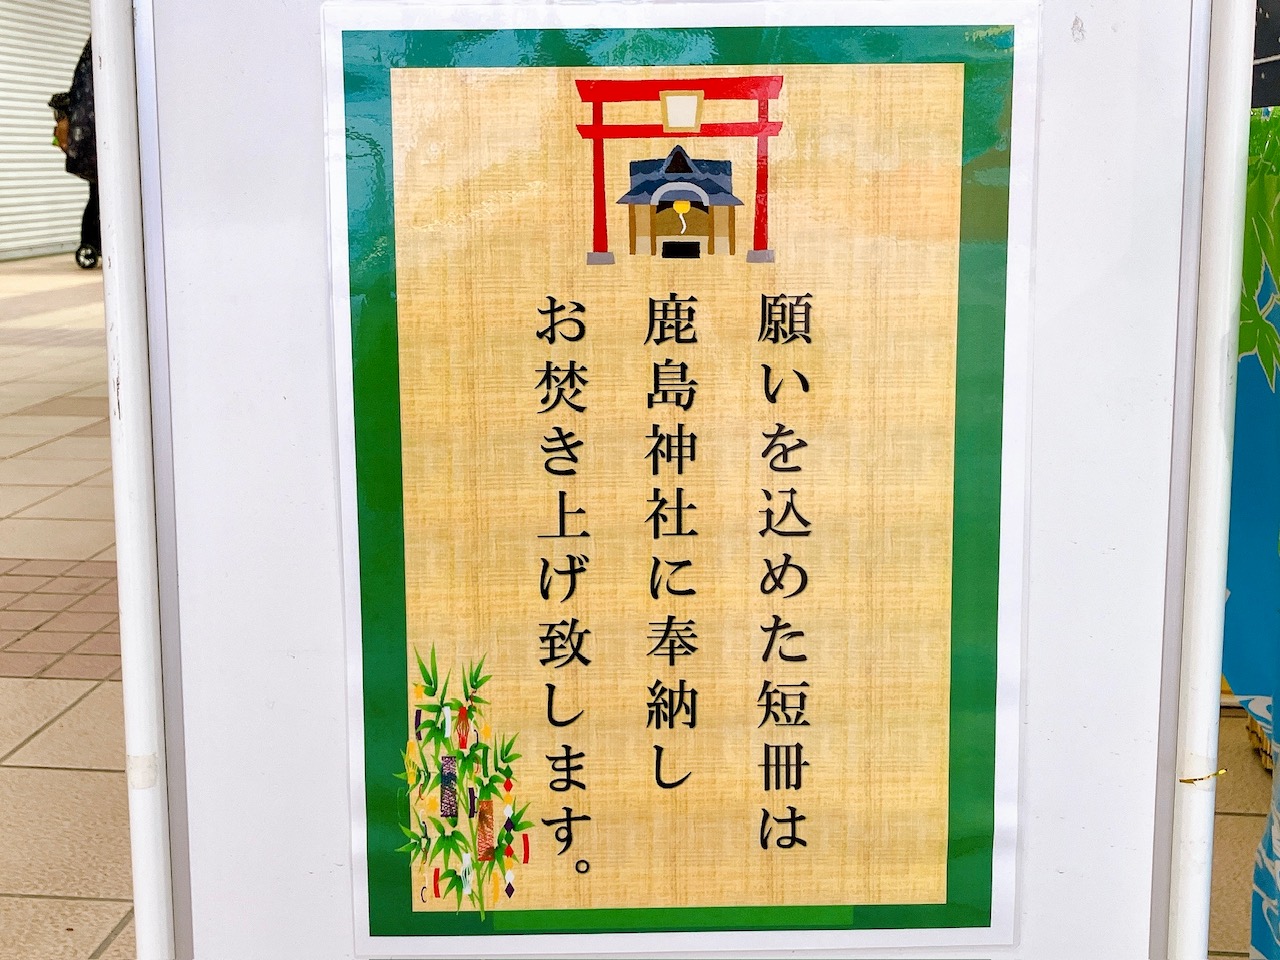 願いを込めた短冊は
鹿島神社に奉納し
お焚き上げ致します。